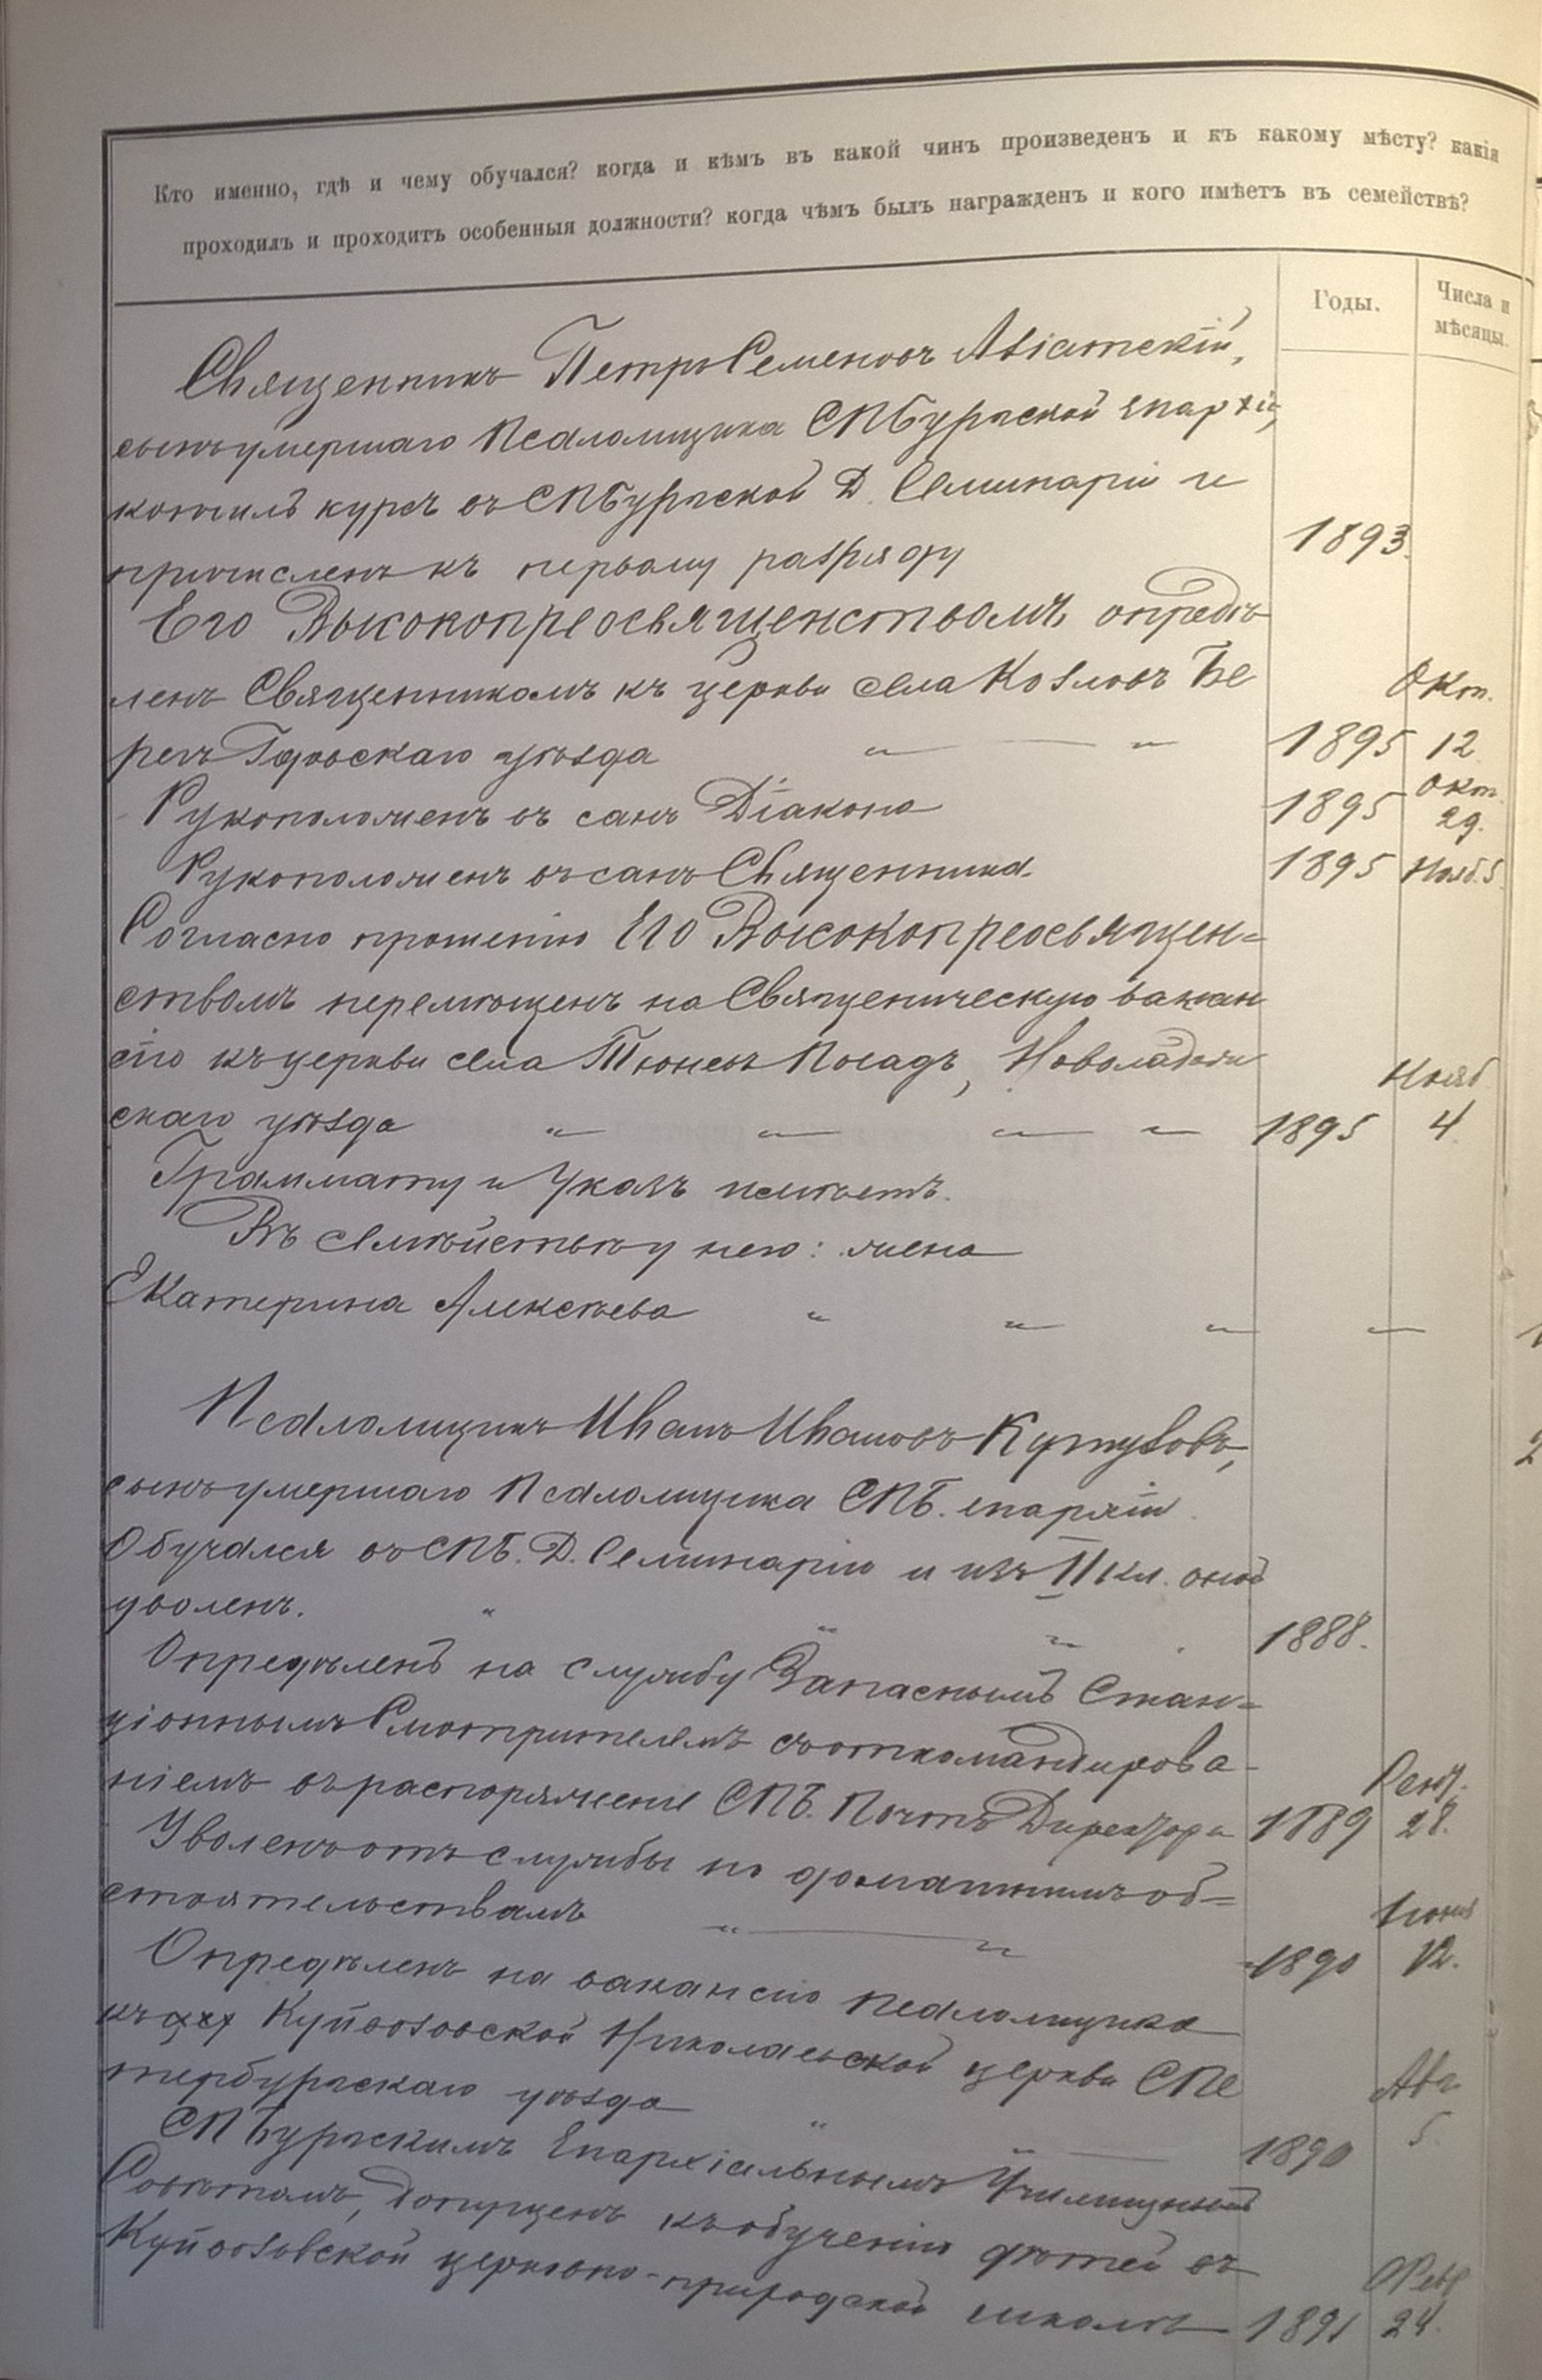 Кто именно, гдѣ и чему обучался? когда и кѣмъ въ какой чинъ произведенъ и къ какому мѣсту? какія
проходилъ и проходитъ особенныя должности? когда чѣмъ былъ награжденъ и кого имѣетъ въ семействѣ?
Годы.
Числа и
мѣсяцы.
Священникъ Петръ Семеновъ Азіатскій,
сынъ умершаго Псаломщика СПБургской Епархіи,
кончилъ курсъ въ СПБургской Д. Семинаріи и
причисленъ къ первому разряду 1893.
Его Высокопреосвященствомъ опредѣ
ленъ Священникомъ къ церкви села Козловъ Бе
регъ Гдовскаго уѣзда " " 1895 Окт. 12.
Рукоположенъ въ санъ Діакона 1895 Окт. 29.
Рукоположенъ въ санъ Священника. 1895 Нояб. 5.
Согласно прошенію Его Высокопреосвящен=
ствомъ перемѣщенъ на Священическую вакан
сію къ церкви села Посадъ, Новоладож
скаго уѣзда " " " " 1895 Нояб. 4.
Граммату и Указъ имѣетъ.
Въ семѣйствѣ у него: жена
Екатерина Алексѣева " " " "
Псаломщикъ Иванъ Ивановъ Кутузовъ,
сынъ умершаго Псаломщика СПБ. епархіи.
Обучался въ СПБ. Д. Семинаріи и изъ II кл. оной
уволенъ. " " " 1888.
Опредѣленъ на службу Запаснымъ Стан=
ціоннымъ Смотрителемъ съ откомандирова-
ніемъ въ распоряженіе СПБ. Почтъ Директора 1889 28.
Уволенъ отъ службы по домашнимъ об=
стоятельствамъ " " 1890 Іюня 12.
Опредѣленъ на вакансію Псаломщика
къ Куйвозовской Николаевской церкви СПе
тербургскаго уѣзда " " 1890 Авг. 5.
СПБургскимъ Епархіальнымъ Училищнымъ
Совѣтомъ, допущенъ къ обученію дѣтей въ
Куйвозовской церковно-приходской школѣ 1891 Февр. 24.